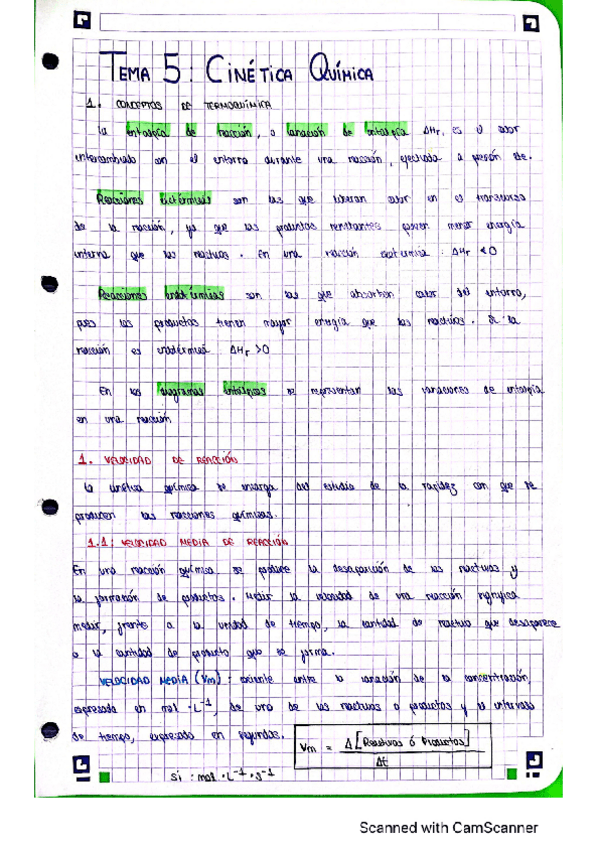 TEMA 5: CINÉTICA QUÍMICA
1. CONCEPTOS DE TERMOQUÍMICA
La entalpía de reacción, o variación de entalpía ΔHr, es el calor
intercambiado con el entorno durante una reacción, efectuada a presión cte.
Reacciones exotérmicas son las que liberan calor en el transcurso
de la reacción, ya que los productos resultantes poseen menor energía
interna que los reactivos. En una reacción exotérmica: ΔHr <0
Reacciones endotérmicas son las que absorben calor del entorno,
pues los productos tienen mayor energía que los reactivos. Si la
reacción es endotérmica ΔHr >0
En los diagramas entálpicos se representan las variaciones de entalpía
en una reacción
1. VELOCIDAD DE REACCIÓN
La cinética química se encarga del estudio de la rapidez con que se
producen las reacciones químicas.
1.1: VELOCIDAD MEDIA DE REACCIÓN
En una reacción química se produce la desaparición de los reactivos y
la formación de productos. Medir la velocidad de una reacción significa
medir, frente a la unidad de tiempo, la cantidad de reactivo que desaparece
o la cantidad de producto que se forma.
VELOCIDAD MEDIA (Vm): cociente entre la variación de la concentración,
expresada en mol · L⁻¹, de uno de los reactivos o productos y el intervalo
de tiempo, expresado en segundos.
Vm = Δ[Reactivos ó Productos] / Δt
SI: mol · L⁻¹ · s⁻¹
Scanned with CamScanner